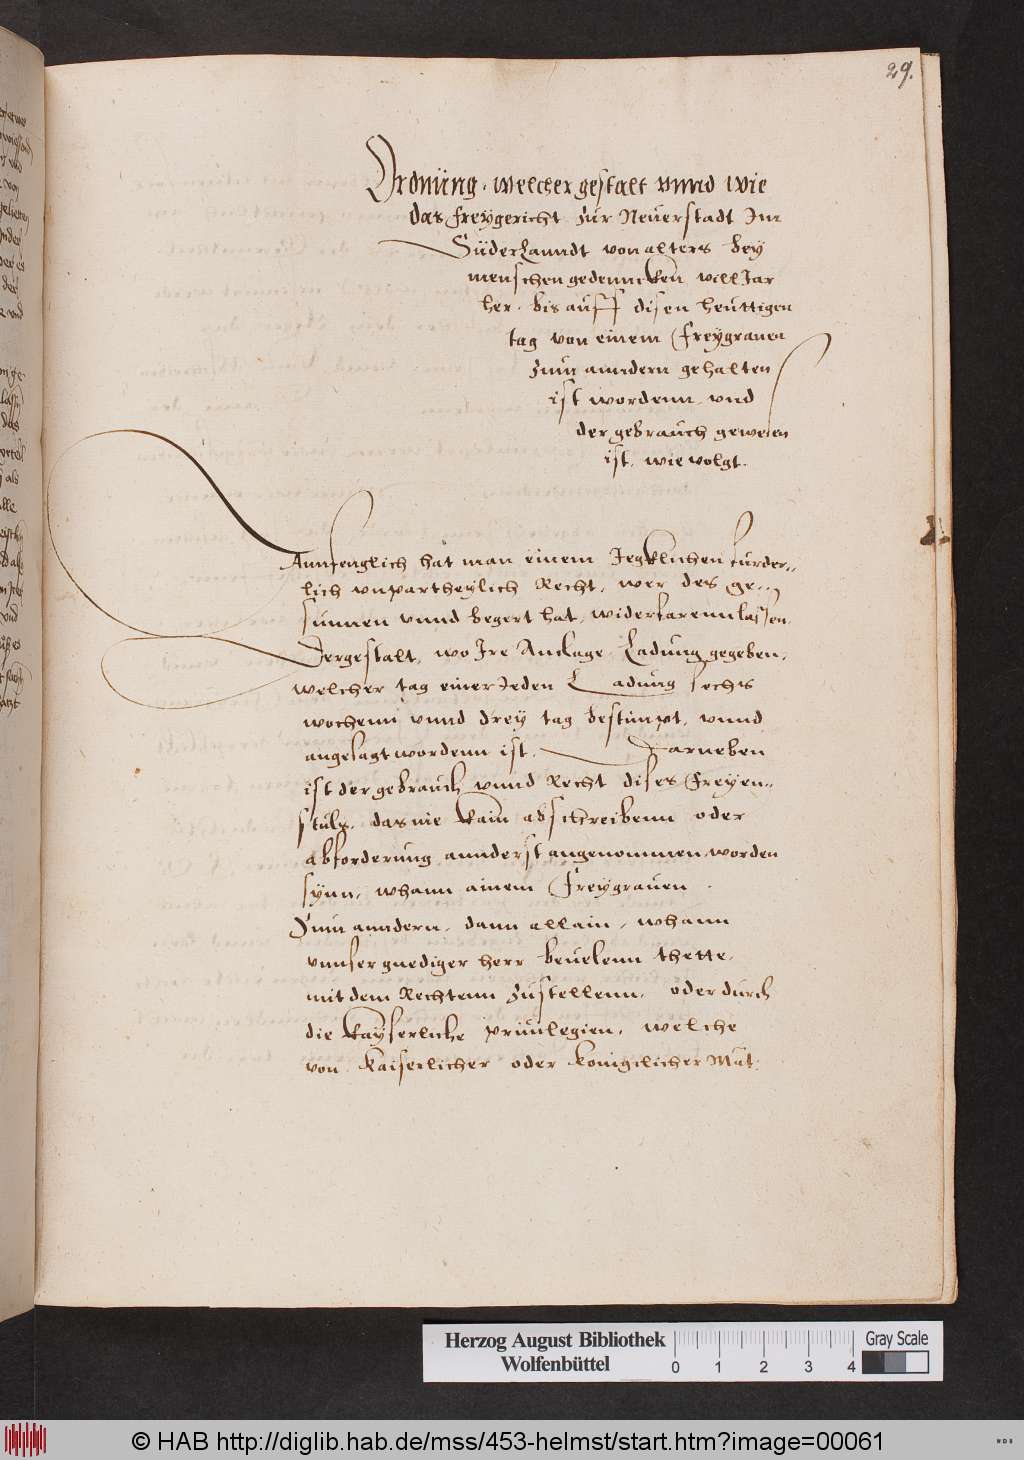 29.
Ordnüng. welcher gestalt vnnd wie
das freygericht zur Neuerstadt Im
Süderlanndt von alters bey
menschen gedenncken vill Jar
her. bis auff disen heuttigen
tag von einem freygrauen
zum anndern gehalten
ist wordenn, vnd
der gebrauch gewesen
ist, wie volgt.
Annfenglich hat man einem Jegklichen furder,,
lich vnpartheylich Recht, wer des ge,,
sunnen vnnd begert hat, widerfarenn lassen,
Dergestalt, wo Ire Anclage Ladung gegeben,
welcher tag einer Jeden Ladung sechs
wochenn vnnd drey tag bestimpt, vnnd
angesagt wordenn ist. Darneben
ist der gebrauch vnnd Recht dises freyen,,
stuls, das nie kain abschreibenn oder
abforderung annderst angenommen worden
synn, whann ainem freygrauen
Zum anndern, dann allain, whann
vnnser gnediger herr beuelenn thette,
mit dem Rechtenn zustellenn, oder durch
die kayserliche priuilegien, welche
von kaiserlicher oder konigclicher Mat:
Herzog August Bibliothek
Wolfenbüttel
0 1 2 3 4
Gray Scale
© HAB http://diglib.hab.de/mss/453-helmst/start.htm?image=00061